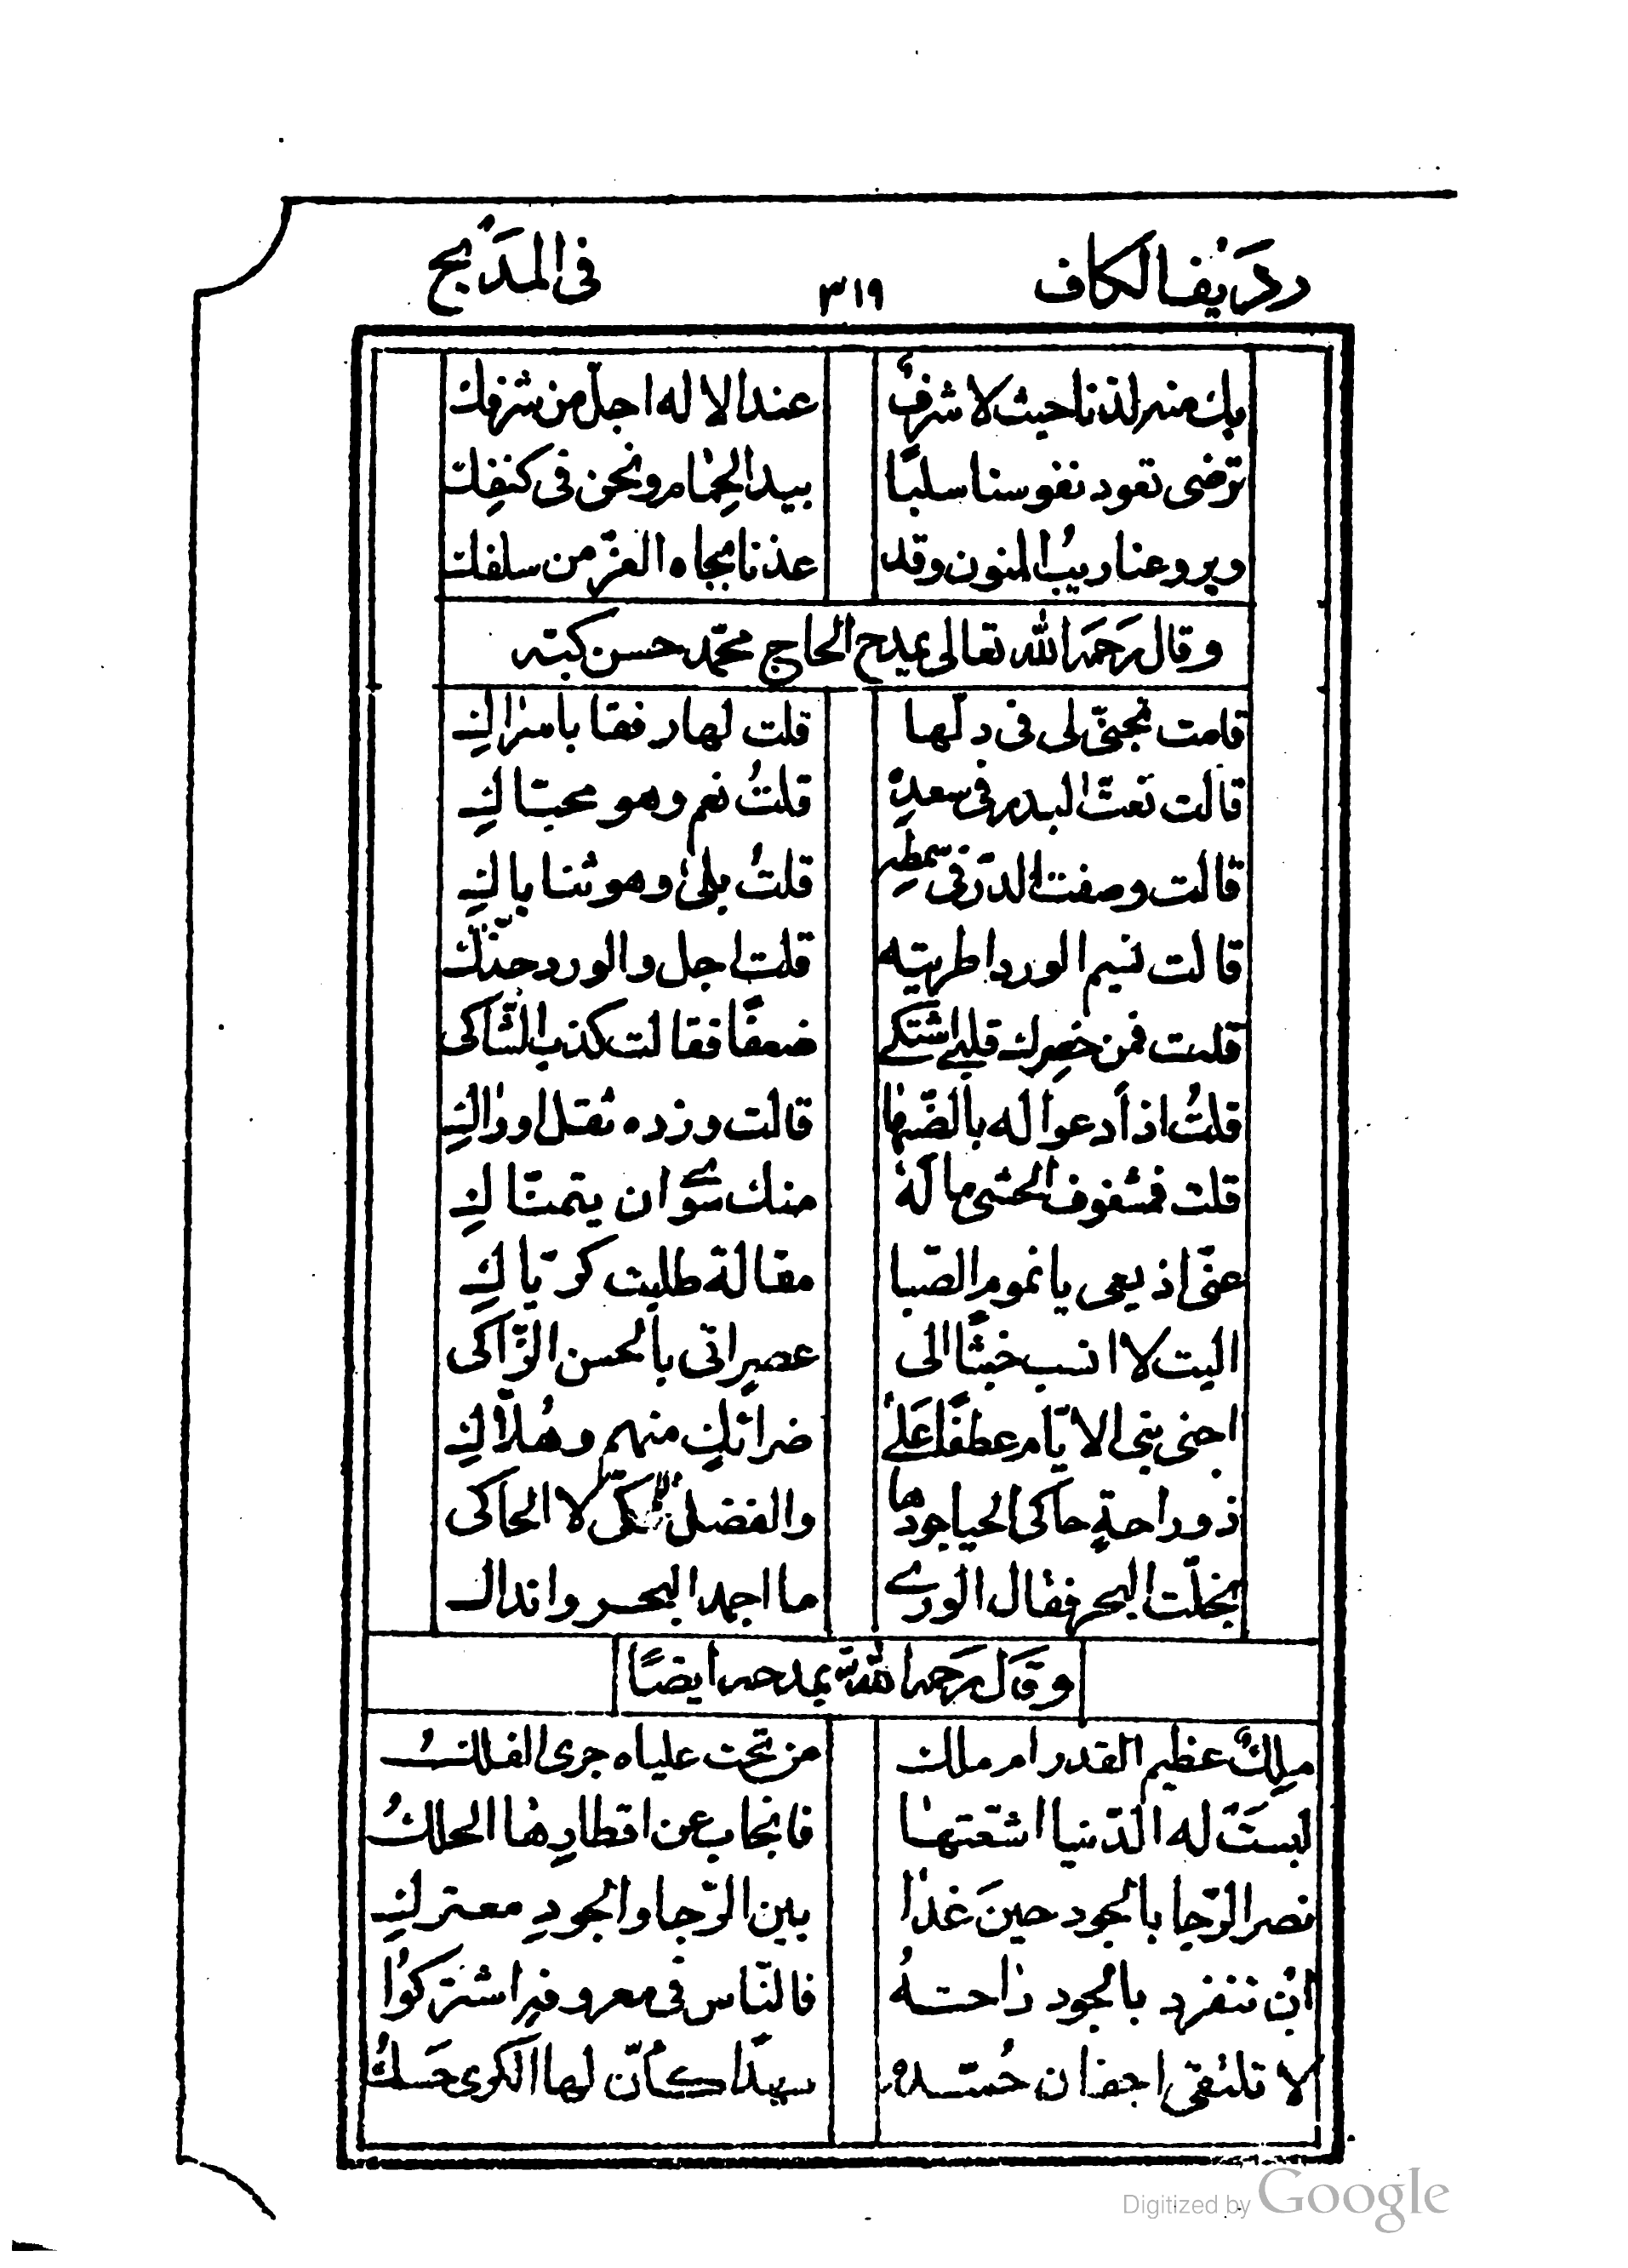 رديف الكاف ٣١٩ في المديح
بك منه لذنا حيث لا شرفٌ عند الاله اجلّ من شرفك
ترضى تعود نفوسنا سلبًا بيد الحِمام ونحن في كنفِك
ويروعنا ريبُ المنون وقد عذنا بجاه العزّ من سلفك
وقال رَحمَه الله تعالى يمدح الحاج محمّد حسن كبته
قامت تجنّى لى فى دلّها قلت لها رفقا باسراكِ
قالت نعتّ البدر فى سعدِهِ قلتُ نعم وهو محيّاكِ
قالت وصفت الدرّ فى سمطِه قلتُ بلىٰ وهو ثناياكِ
قالت نسيم الورد اطريته قلت اجل والورد خدّاك
قلت فمن خصرك قلبى اشتكى ضعفًا فقالت كذب الشّاكى
قلتُ اذًا دعوا له بالضّنا قالت وزده ثقل اوراكِ
قلت فمشغوف الحشى ما لَهُ منك سوى ان يتمنّاكِ
عنّى اذيعى يا نموم الصّبا مقالة طابت كريّاكِ
اليت لا انسب خبثًا الى عصرٍ اتى بالحسن الزّاكى
اجنى بنى الايّام عطفًا عَلىٰ ضرائكٍ منهم وهُلّاكِ
ذو راحةٍ حاكى الحيا جودها والفضل للمحكىّ لا الحاكى
بخلّت البحر فقال الورى ما اجمد البحر وانداك
وقَال رَحمه الله يمدحه ايضًا
ملِكٌ عظيم القدر ام ملك من تحت علياه جرى الفلكُ
لبسَتْ له الدّنيا اشعّتها فانجاب عن اقطارِها الحلكُ
نصر الرّجا بالجود حينَ غدا بين الرّجا والجودِ معتركِ
ان تنفرد بالجود راحتهُ فالنّاس فى معروفهِ اشتركوا
لا تلتقى اجفان حُسّده سهدًا كأنّ لها الكرى حَسكُ
Digitized by Google